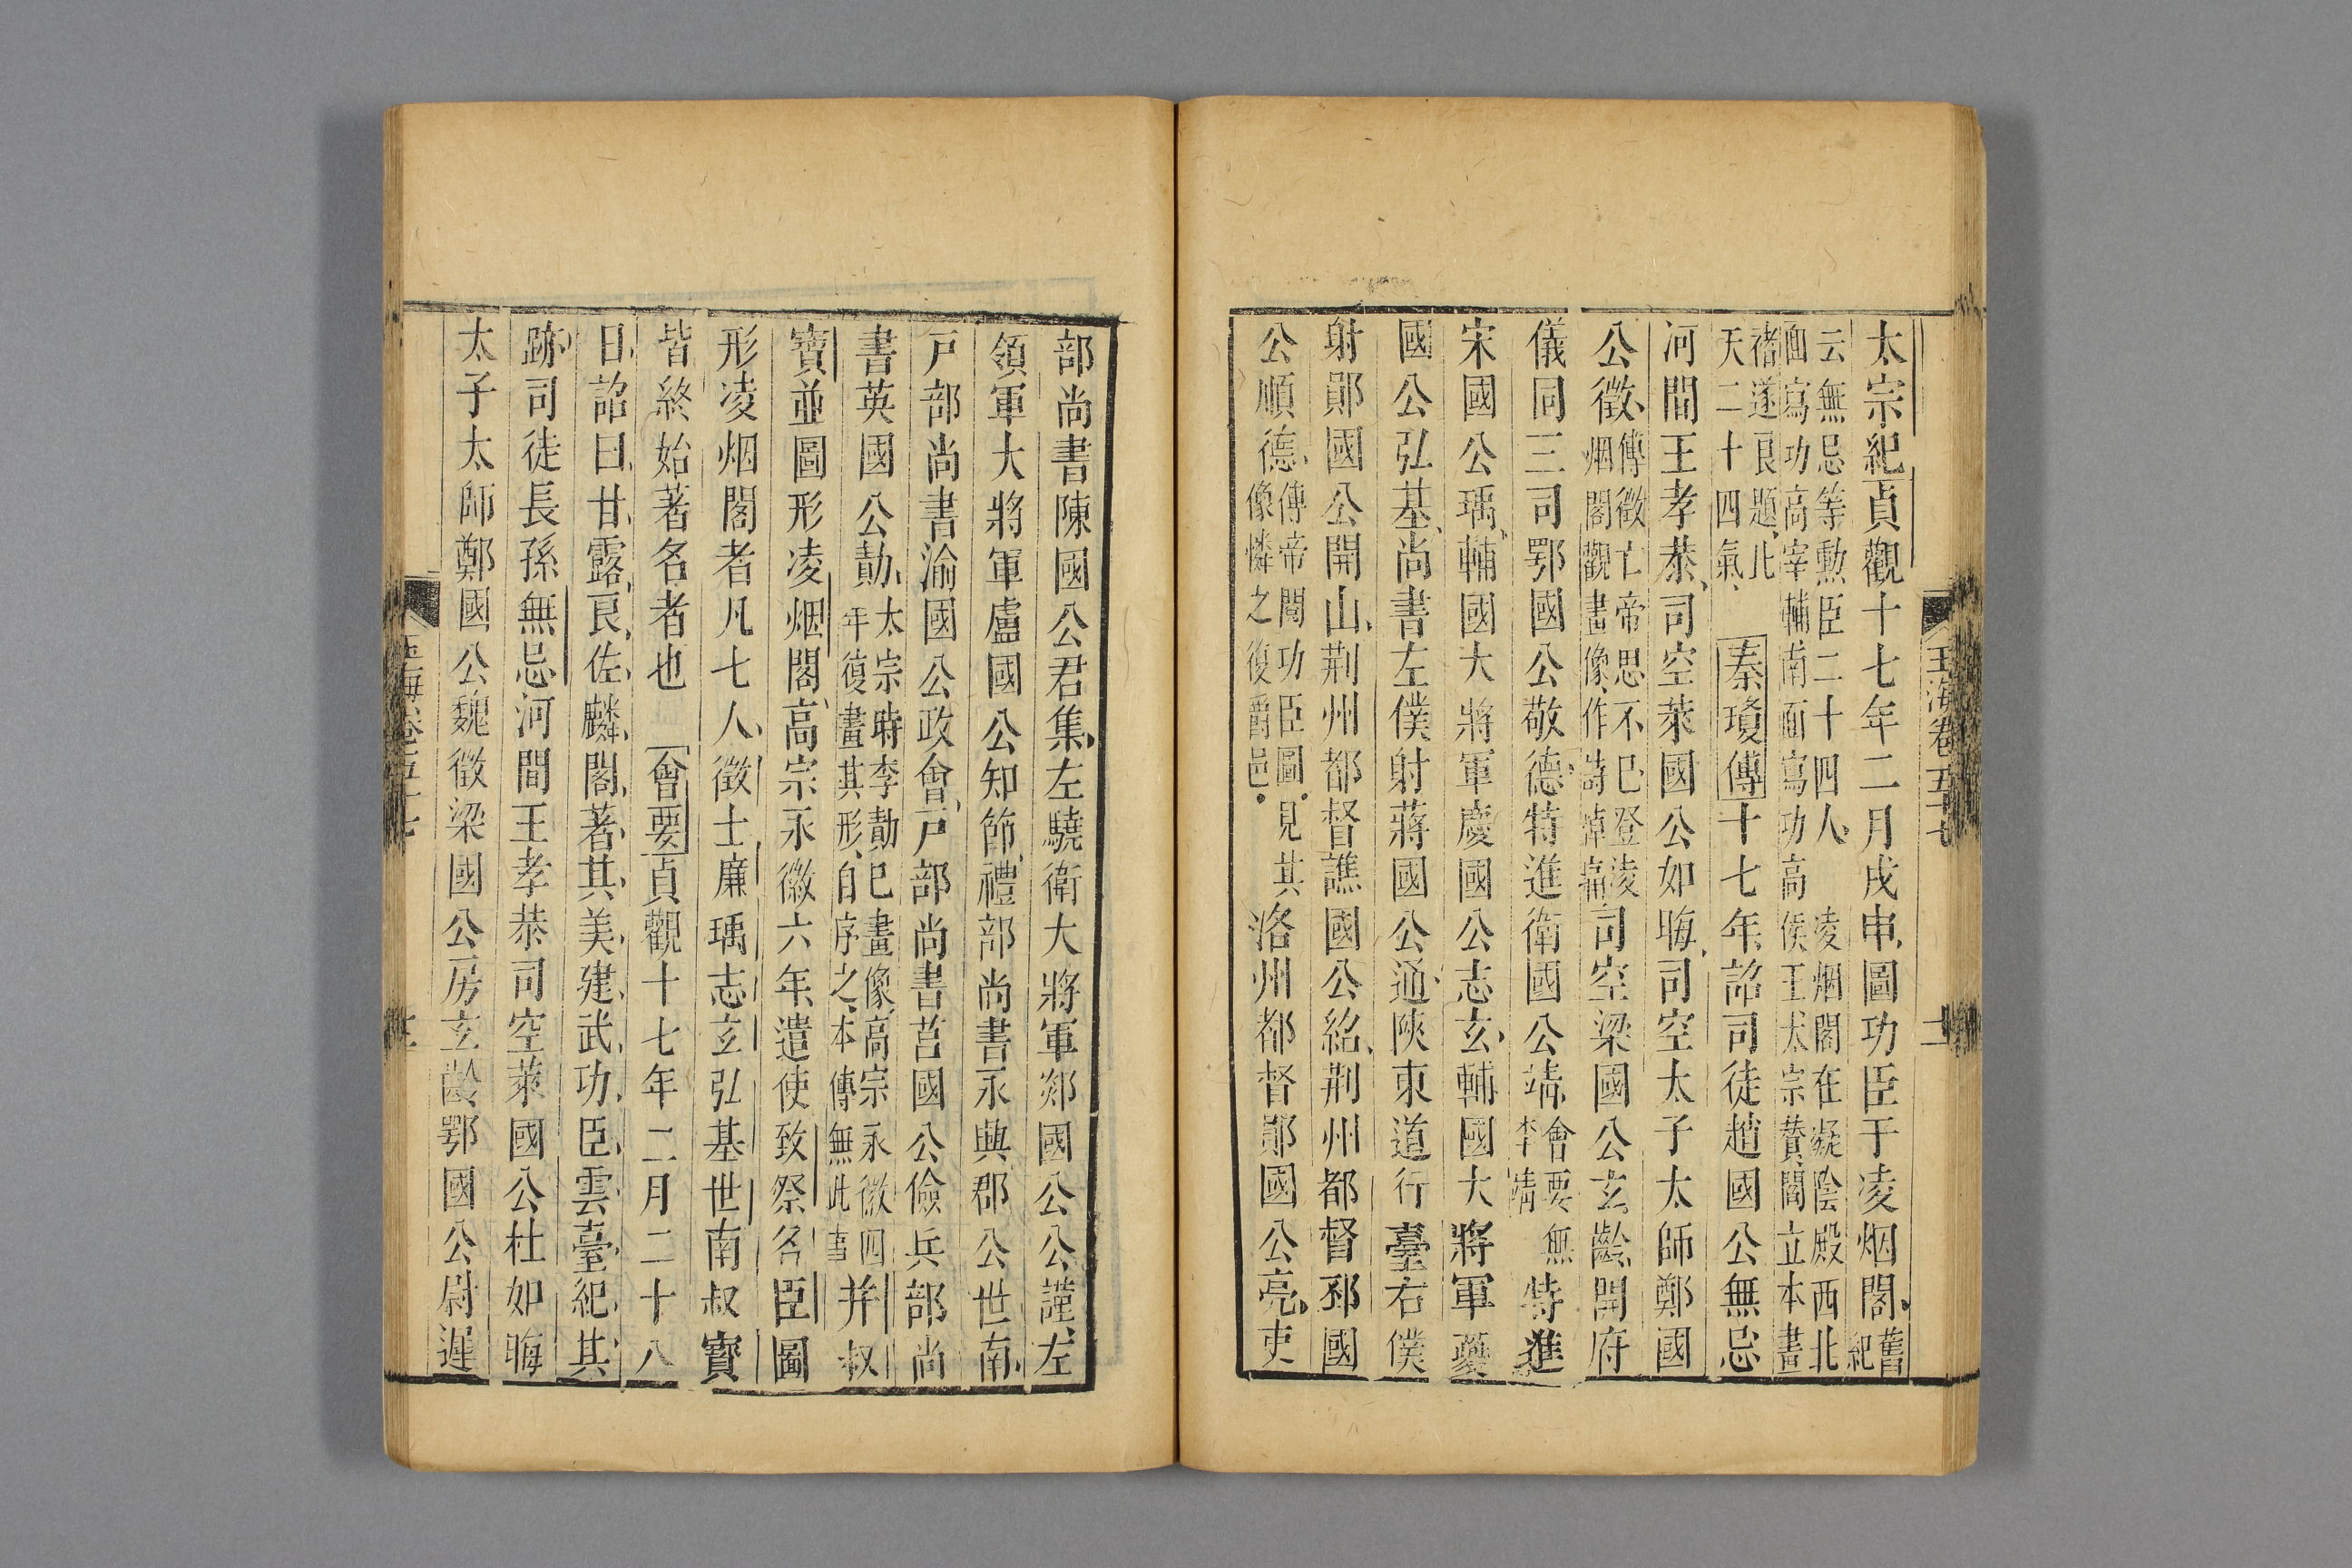 太宗紀貞觀十七年二月戌申圖功臣于凌烟閣舊紀
云無忌等勲臣二十四人凌烟閣在凝陰殿西北
面寫功高宰輔南面寫功高侯王太宗賛閻立本畫
褚遂良題此
天二十四氣秦瓊傳十七年詔司徒趙國公無忌
河間王孝恭司空萊國公如晦司空太子太師鄭國
公徵傳徵亡帝思不已登凌
烟閣觀畫像作詩悼痛司空梁國公玄齡開府
儀同三司鄂國公敬德特進衛國公靖會要無
李靖特進
宋國公瑀輔國大將軍慶國公志玄輔國大將軍夔
國公弘基尚書左僕射蔣國公通陝東道行臺右僕
射鄖國公開山荆州都督譙國公紹荆州都督邳國
公順德傳帝閻功臣圖見其
像憐之復爵邑洛州都督鄖國公亮吏
玉海卷五十七
部尚書陳國公君集左驍衛大將軍郯國公公謹左
領軍大將軍盧國公知節禮部尚書永興郡公世南
戸部尚書渝國公政會戸部尚書莒國公儉兵部尚
書英國公勣太宗時李勣已畫像高宗永徽四
年復畫其形自序之本傳無此事并叔
寶並圖形凌烟閣高宗永徽六年遣使致祭名臣圖
形凌烟閣者凡七人徵士廉瑀志玄弘基世南叔寶
皆終始著名者也會要貞觀十七年二月二十八
日詔曰甘露良佐麟閣著其美建武功臣雲臺紀其
跡司徒長孫無忌河間王孝恭司空萊國公杜如晦
太子太師鄭國公魏徵梁國公房玄齡鄂國公尉遲
玉海卷五十七